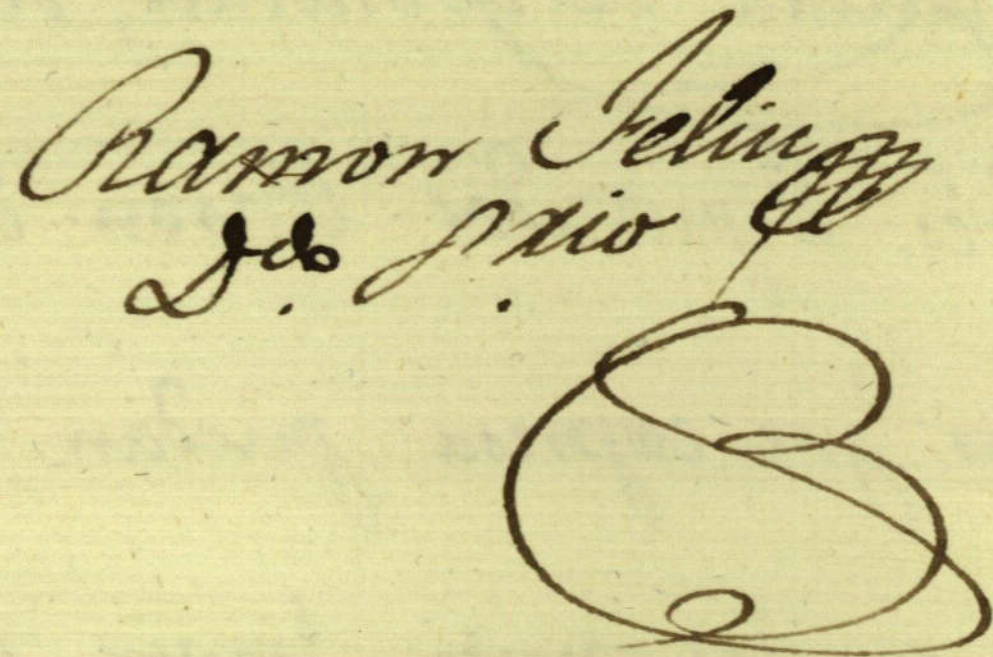 Ramon Feliu
Ddo. Srio.